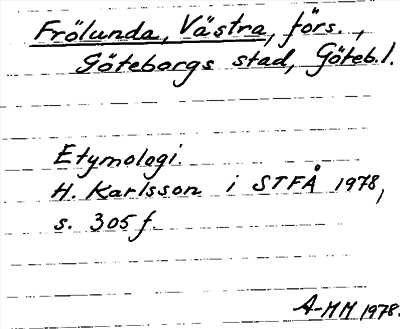 Frölunda, Västra, förs.,
Göteborgs stad, Göteb.l.
Etymologi.
H. Karlsson i STFÅ 1978,
s. 305 f.
A-MM 1978.